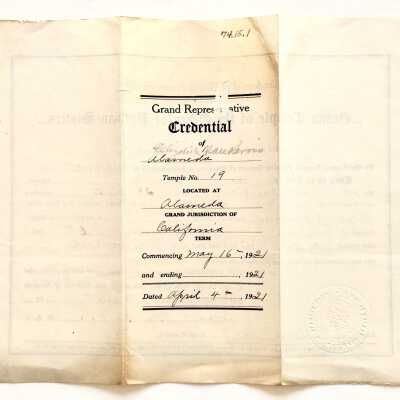 74.15.1
Grand Representative
Credential
of
Alameda
Temple No. 19
LOCATED AT
Alameda
GRAND JURISDICTION OF
California
TERM
Commencing May 16 1921
and ending , 1921
Dated April 4 1921